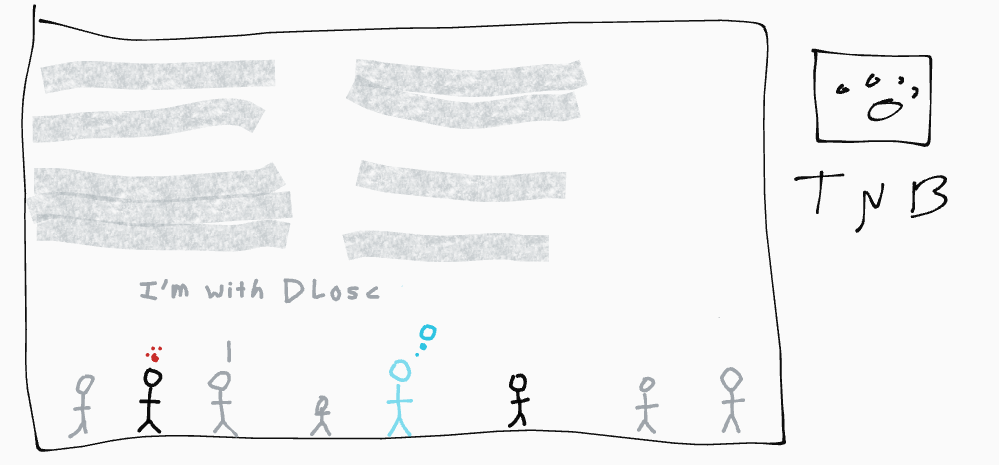 I'm with DLosc
TNB